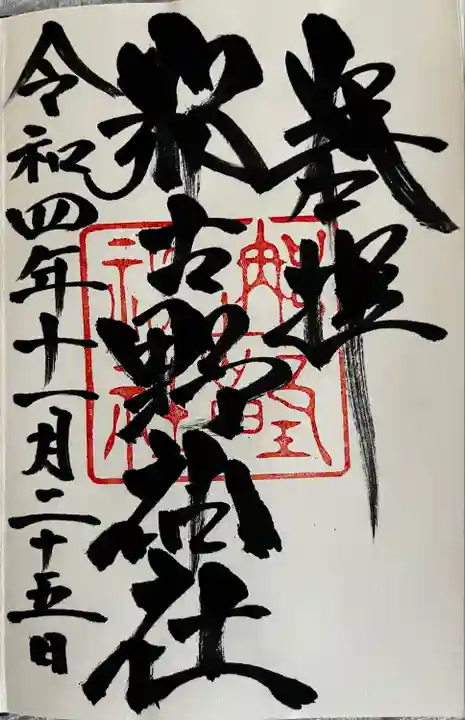 奉拝
古野神社
令和四年十一月二十五日